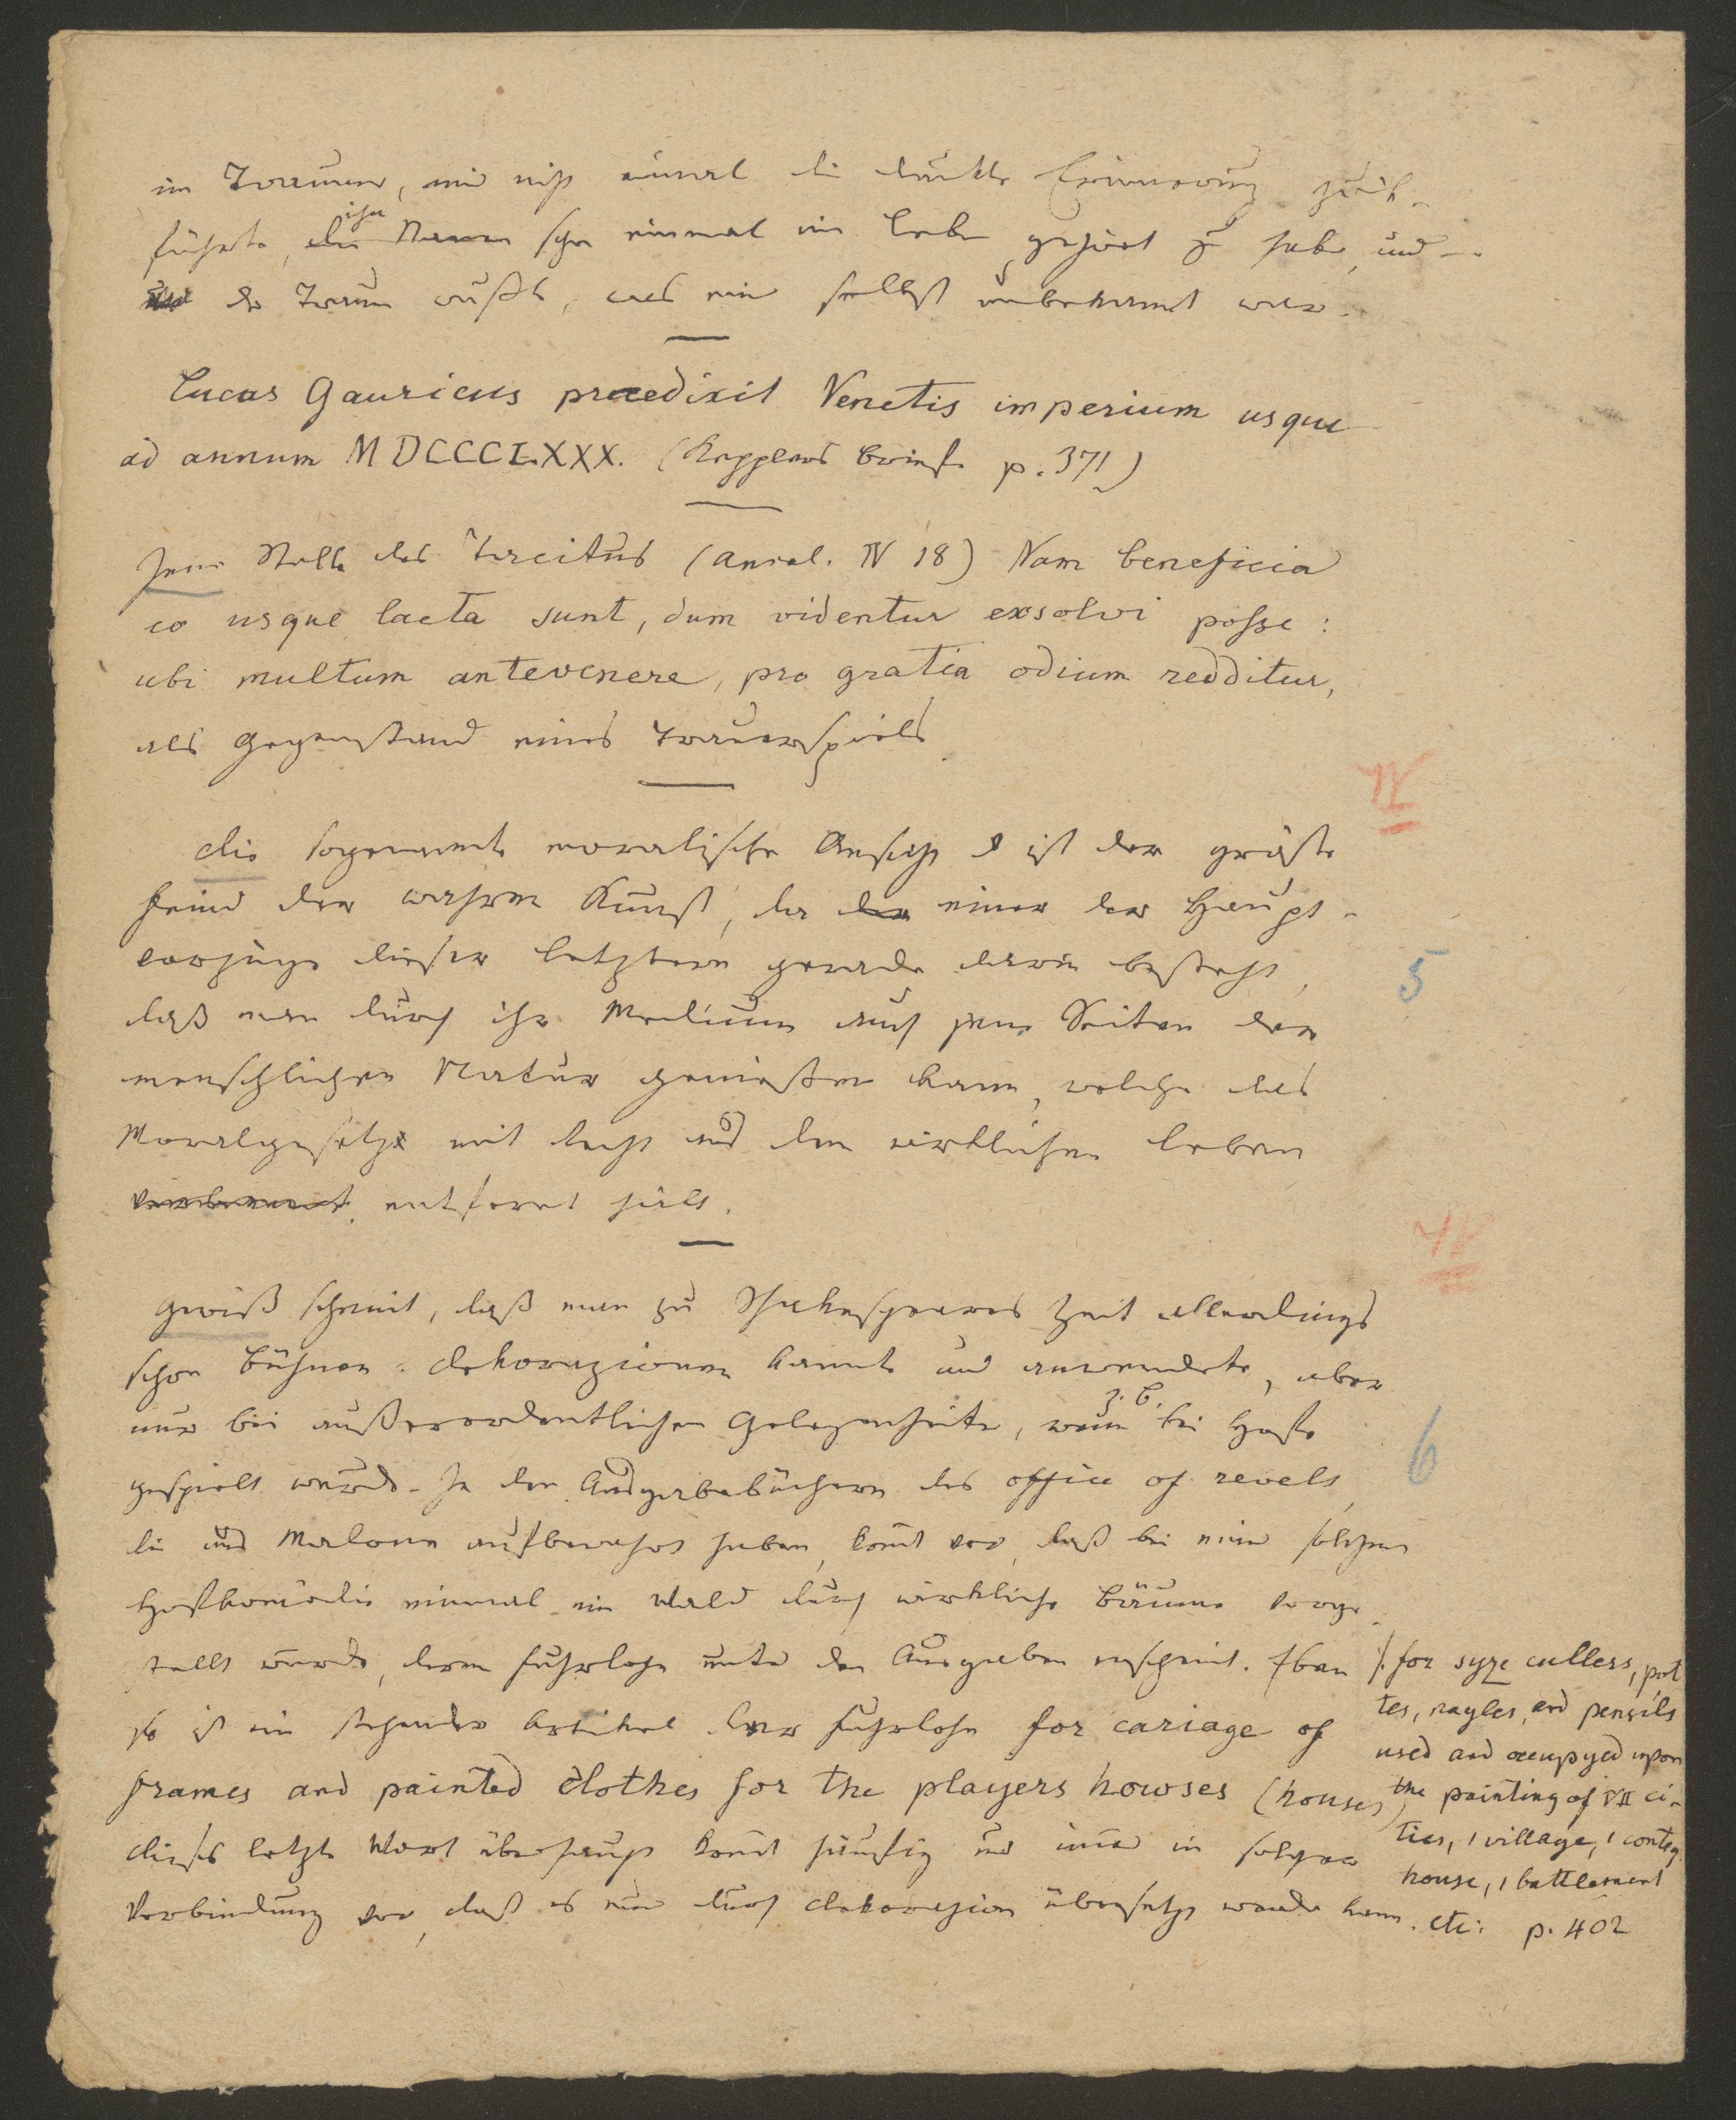 im Traume, mir nicht einmal die dunkle Erinnerung zurück-
führte, den Namen ihn schon einmal im Leben gehört zu haben, und
der Traum wußte, was mir selbst unbekannt war.
Lucas Gauricus praedixit Venetis imperium usque
ad annum MDCCCLXXX. (Kepplers Briefe p. 371)
Jene Stelle des Tacitus (Annal. IV 18) Nam beneficia
eo usque laeta sunt, dum videntur exsolvi posse:
ubi multum antevenere, pro gratia odium redditur,
als Gegenstand eines Trauerspiels.
IV
Die sogenannte moralische Ansicht ist der größte
Feind der wahren Kunst, da der einer der Haupt-
vorzüge dieser letztern gerade darin besteht,
5
daß man durch ihr Medium auch jene Seiten der
menschlichen Natur genießen kann, welche das
Moralgesetz mit Recht aus dem wirklichen Leben
verbannt. entfernt hält.
IV
Gewiß scheint, daß man zu Shakespeares Zeit allerdings
schon Bühnen-Dekorazionen kannte und anwendete, aber
nur bei außerordentlichen Gelegenheiten, wenn z. B. bei Hofe
6
gespielt wurde. In den Ausgabebüchern des office of revels,
die uns Malone aufbewahrt haben, kommt vor, daß bei einer solchen
Hofkomödie einmal ein Wald durch wirkliche Bäume vorge-
stellt wurde, deren Fuhrlohn unter den Ausgaben erscheint. Eben
so ist ein stehender Artikel der Fuhrlohn for cariage of
frames and painted clothes for the players howses (houses)
dieses letzte Wort überhaupt kommt häufig und immer in solcher
Verbindung vor, daß es nur durch Dekorazion übersetzt werden kann.
/. for syze cullers, pot
tes, nayles, and pensils
used and occupyed upon
the painting of VII ci-
ties, 1 village, 1 contey
house, 1 battlement
etc: p. 402